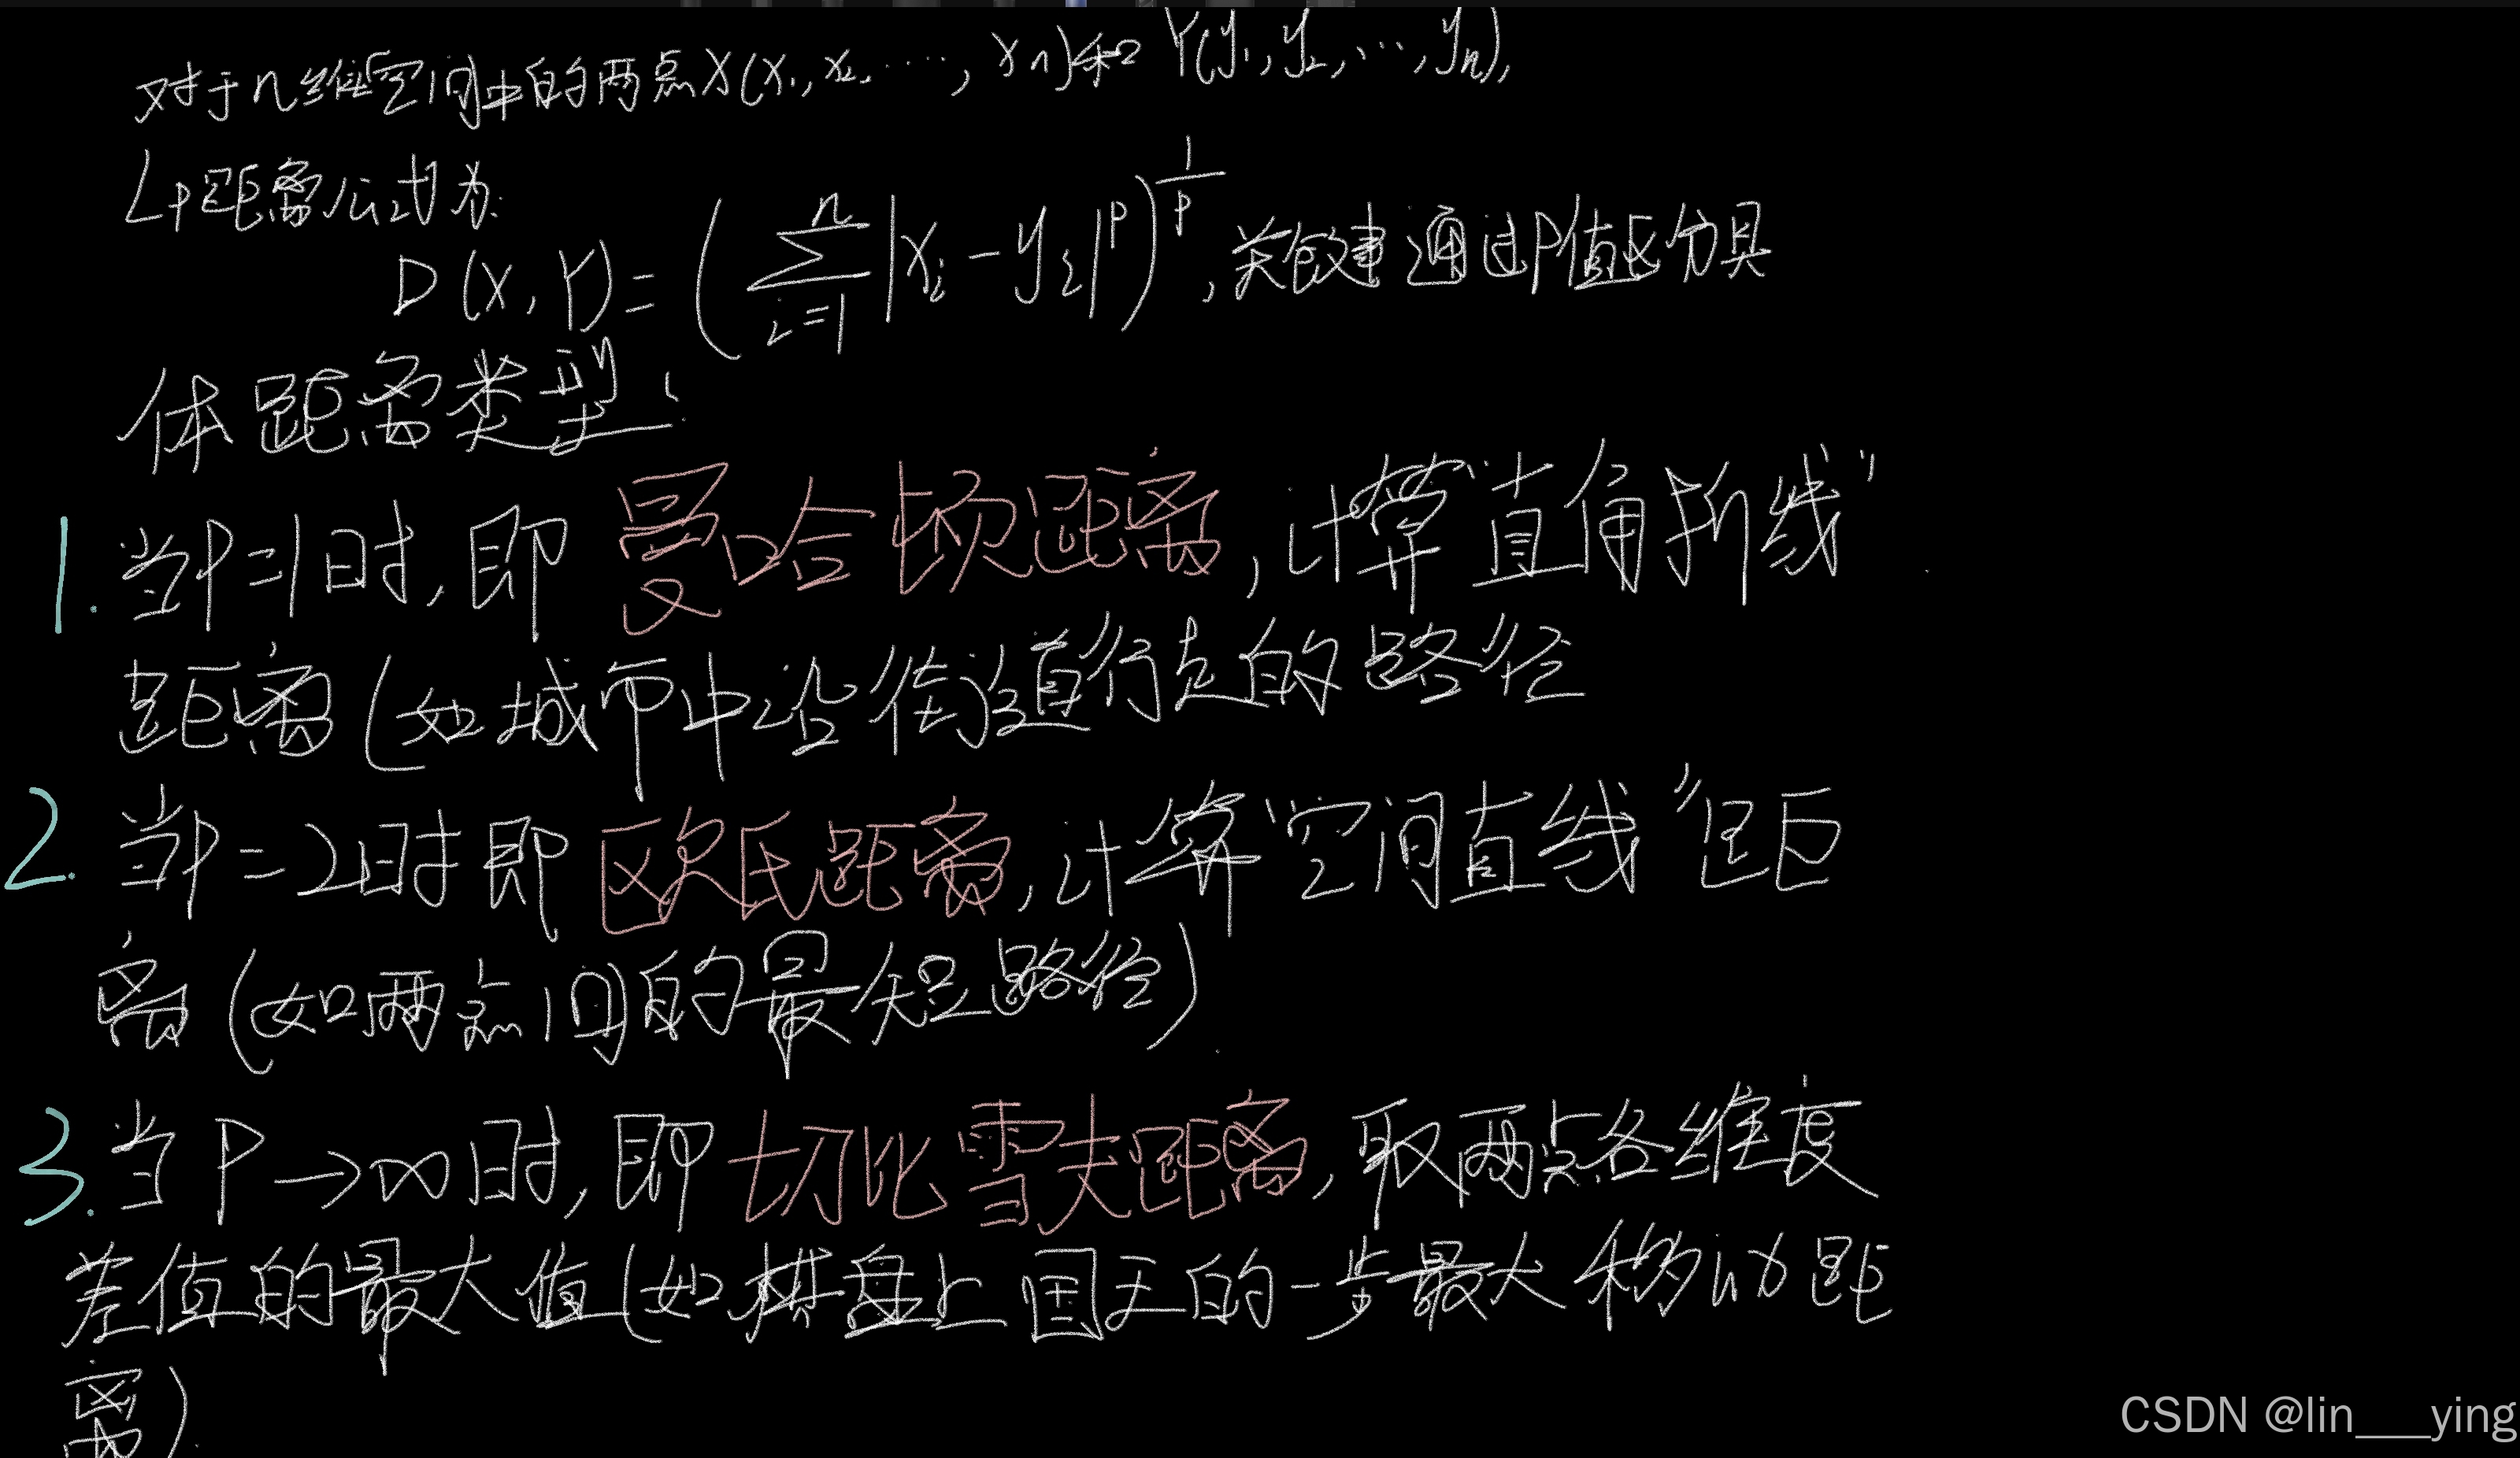 对于n维空间中的两点X(x₁,x₂,……,xn)和Y(y₁,y₂,…,yn),
Lp距离公式为:
D(X,Y)=(∑ⁿᵢ₌₁|xᵢ-yᵢ|ᵖ)^(1/p),关键通过P值区分具
体距离类型:
1.当P=1时,即曼哈顿距离,计算“直角折线”
距离(如城市中沿街道行走的路径
2.当P=2时即欧氏距离,计算“空间直线”距
离(如两点间的最短路径)
3.当P→∞时,即切比雪夫距离,取两点各维度
差值的最大值(如棋盘上国王的一步最大移动距
离)
CSDN @lin___ying